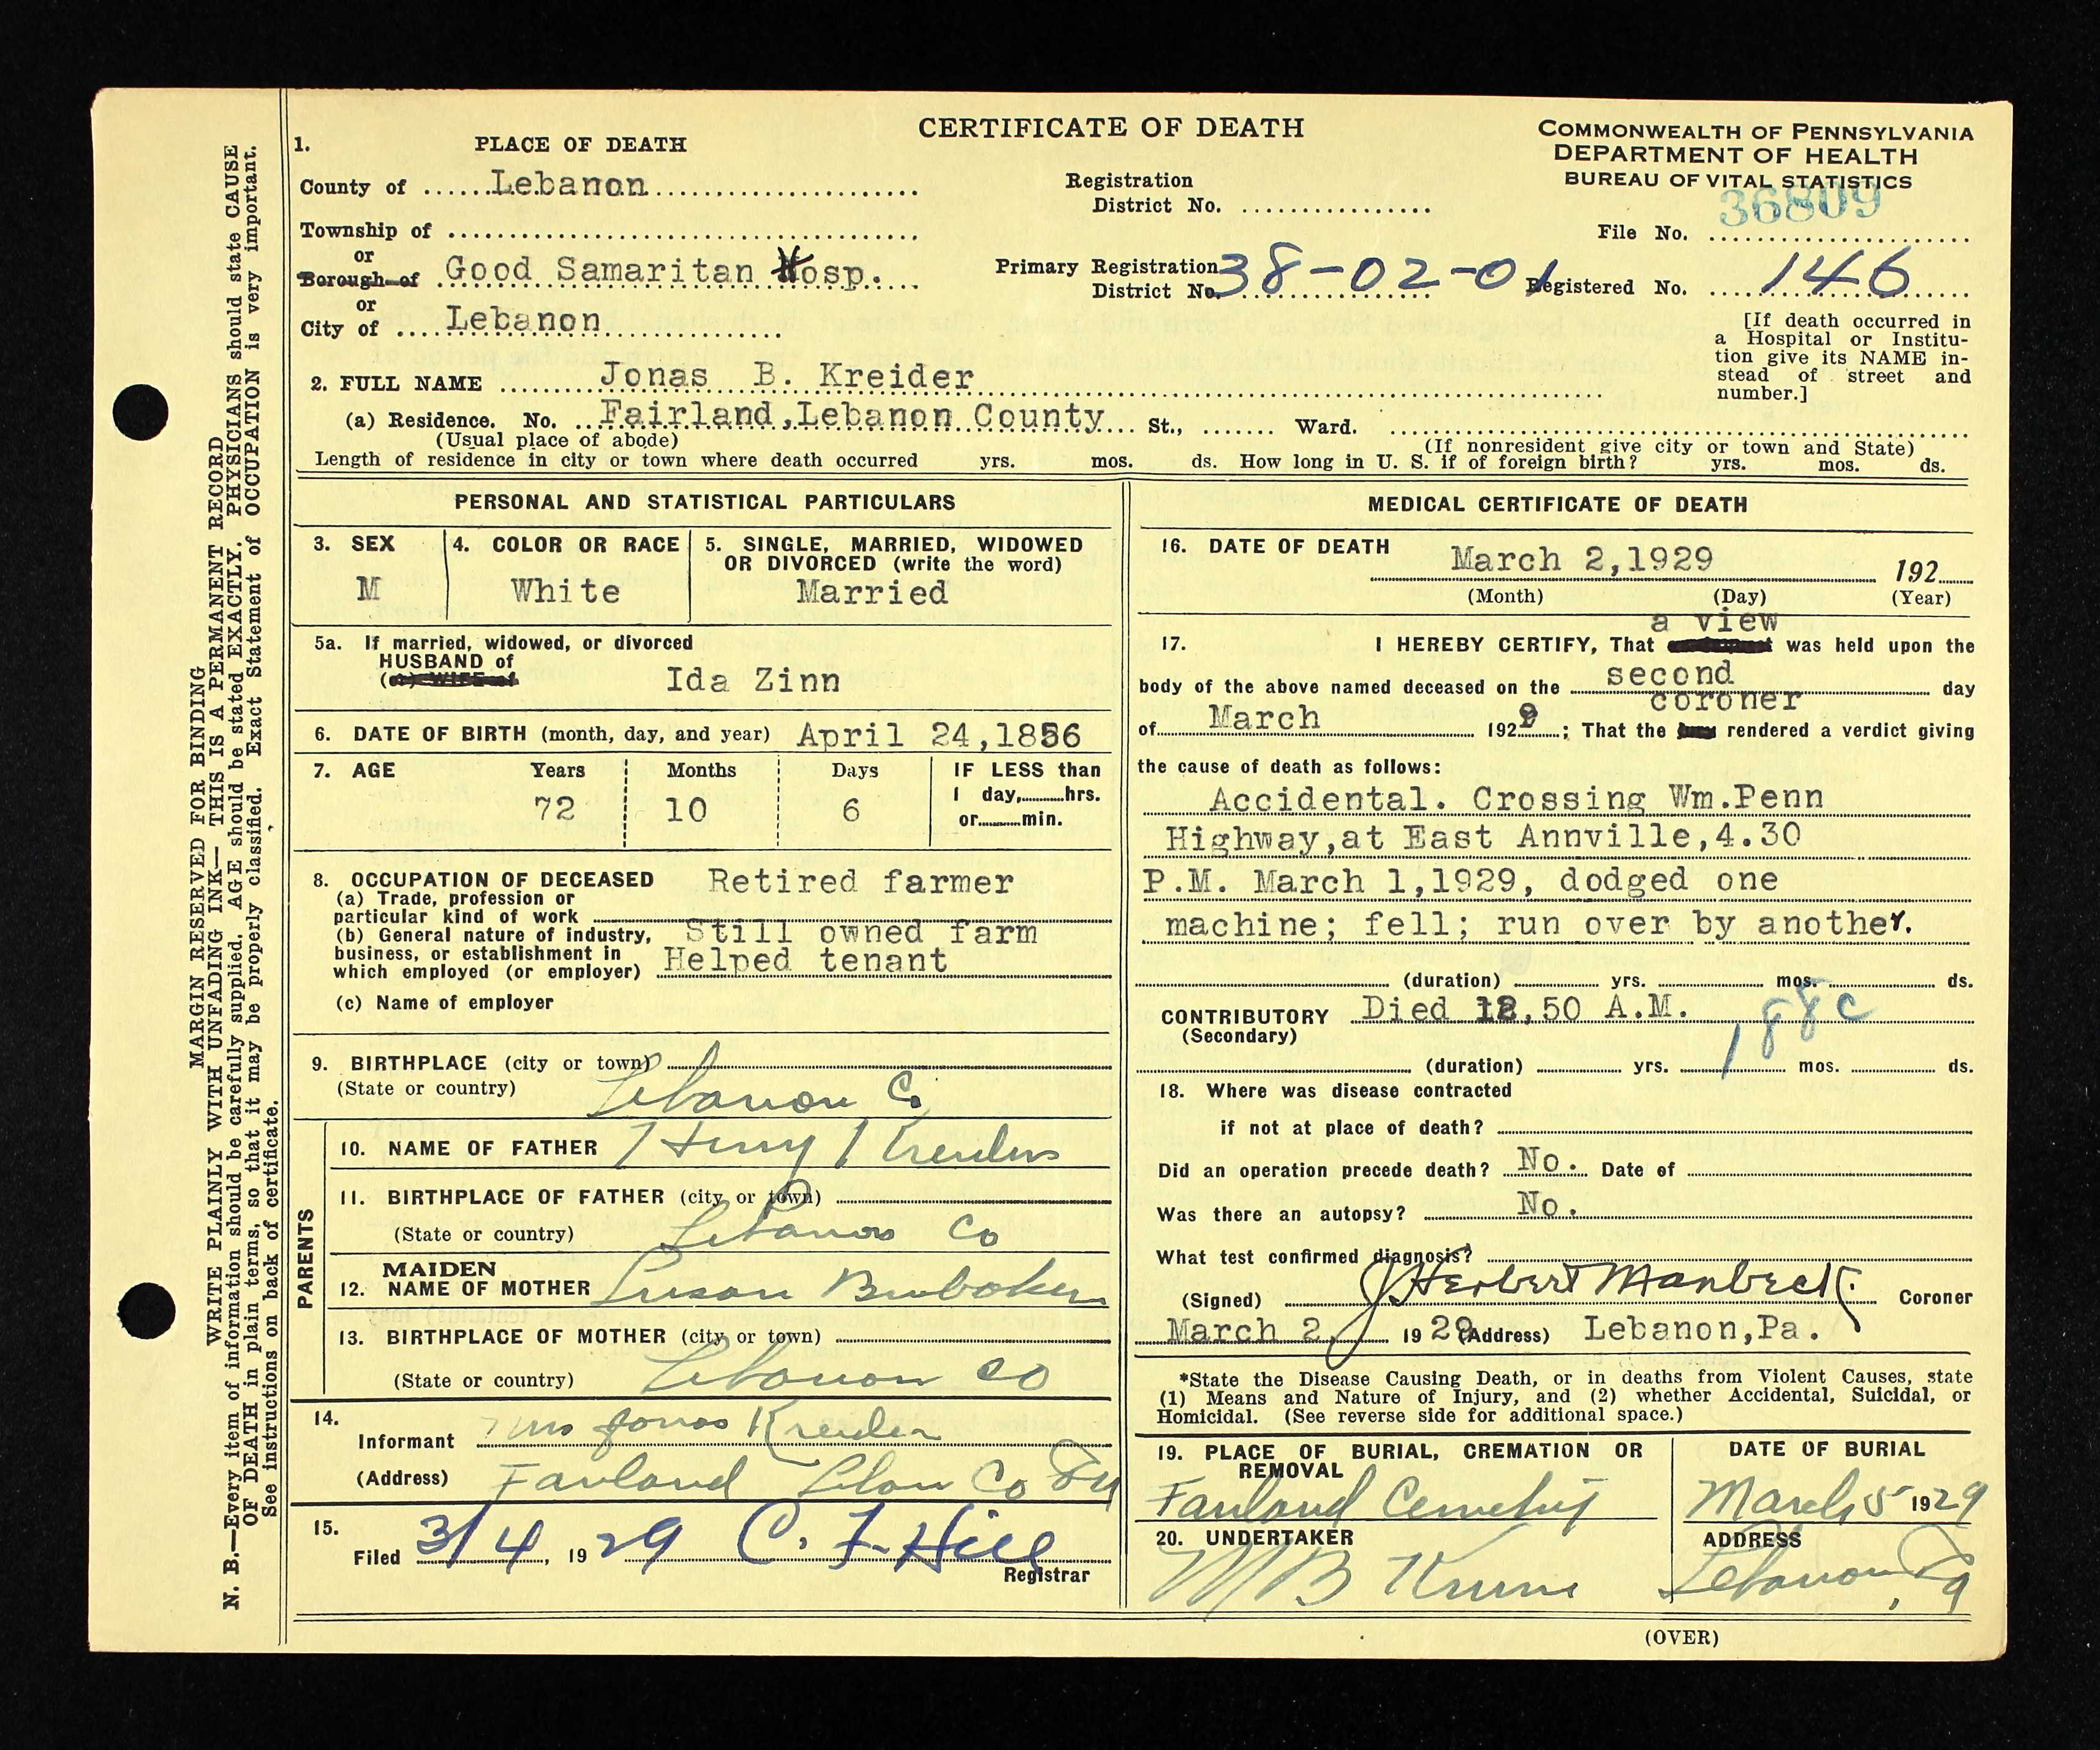 CERTIFICATE OF DEATH
COMMONWEALTH OF PENNSYLVANIA
DEPARTMENT OF HEALTH
BUREAU OF VITAL STATISTICS
36809
File No. ....................
1. PLACE OF DEATH
County of ......Lebanon....................
Registration
District No. ................
Township of ....................
or
Borough of Good Samaritan Hosp.
Primary Registration
District No. 38-02-01
Registered No. 146
or
City of ....Lebanon
[If death occurred in
a Hospital or Institu-
tion give its NAME in-
stead of street and
number.]
2. FULL NAME Jonas B. Kreider
(a) Residence. No. Fairland, Lebanon County St., ....... Ward.
(Usual place of abode)
(If nonresident give city or town and State)
Length of residence in city or town where death occurred yrs. mos. ds. How long in U. S. if of foreign birth? yrs. mos. ds.
PERSONAL AND STATISTICAL PARTICULARS
3. SEX
M
4. COLOR OR RACE
White
5. SINGLE, MARRIED, WIDOWED
OR DIVORCED (write the word)
Married
5a. If married, widowed, or divorced
HUSBAND of
(or) WIFE of Ida Zinn
6. DATE OF BIRTH (month, day, and year) April 24,1856
7. AGE Years Months Days
72 10 6
IF LESS than
1 day,......hrs.
or......min.
8. OCCUPATION OF DECEASED Retired farmer
(a) Trade, profession or
particular kind of work
(b) General nature of industry, Still owned farm
business, or establishment in
which employed (or employer) Helped tenant
(c) Name of employer
9. BIRTHPLACE (city or town)
(State or country) Lebanon Co
PARENTS
10. NAME OF FATHER Henry Kreider
11. BIRTHPLACE OF FATHER (city or town)
(State or country) Lebanon Co
12. MAIDEN
NAME OF MOTHER Susan Brubaker
13. BIRTHPLACE OF MOTHER (city or town)
(State or country) Lebanon Co
14.
Informant Mrs Jonas Kreider
(Address) Fairland Leban Co Pa
15.
Filed 3/4, 1929 C. F. Hill
Registrar
MEDICAL CERTIFICATE OF DEATH
16. DATE OF DEATH March 2,1929 192
(Month) (Day) (Year)
a view
17. I HEREBY CERTIFY, That was held upon the
body of the above named deceased on the second day
coroner
of March 1929; That the jury rendered a verdict giving
the cause of death as follows:
Accidental. Crossing Wm.Penn
Highway,at East Annville,4.30
P.M. March 1,1929, dodged one
machine; fell; run over by another.
(duration) yrs. mos. ds.
CONTRIBUTORY Died 12,50 A.M.
(Secondary)
188c
(duration) yrs. mos. ds.
18. Where was disease contracted
if not at place of death?
Did an operation precede death? No. Date of
Was there an autopsy? No.
What test confirmed diagnosis?
(Signed) J. Herbert Manbeck. Coroner
March 2, 1929 (Address) Lebanon,Pa.
*State the Disease Causing Death, or in deaths from Violent Causes, state
(1) Means and Nature of Injury, and (2) whether Accidental, Suicidal, or
Homicidal. (See reverse side for additional space.)
19. PLACE OF BURIAL, CREMATION OR
REMOVAL
Fairland Cemetery
DATE OF BURIAL
March 5 1929
20. UNDERTAKER
M B Krum
ADDRESS
Lebanon, Pa
(OVER)
MARGIN RESERVED FOR BINDING
WRITE PLAINLY WITH UNFADING INK—THIS IS A PERMANENT RECORD
N. B.—Every item of information should be carefully supplied. AGE should be stated EXACTLY. PHYSICIANS should state CAUSE
OF DEATH in plain terms, so that it may be properly classified. Exact Statement of OCCUPATION is very important.
See instructions on back of certificate.